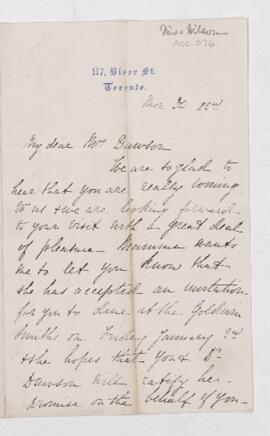 Miss Wilson
Acc. 976
117, Bloor St.
Toronto.
22nd
My dear Mrs Dawson
We are so glad to
hear that you are really coming
to us & we are looking forward
to your visit with a great deal
of pleasure — Mamma wants
me to let you know that
she has accepted an invitation
for you to dine at the Goldwin
Smiths on Friday January 2nd
& she hopes that you & Dr
Dawson will ratify her
promise on the behalf of you-